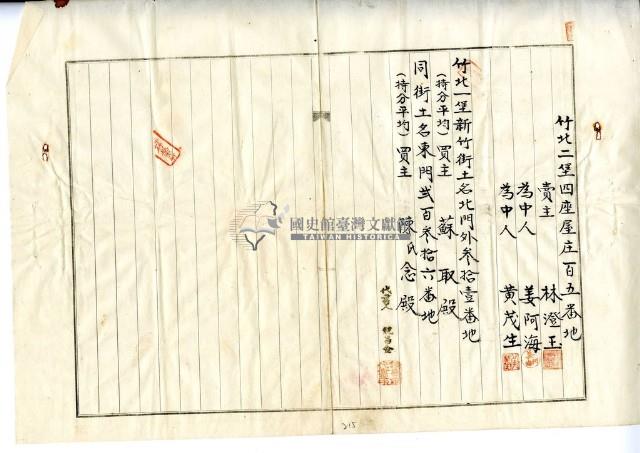 竹北二堡四座屋庄百五番地
賣主 林澄玉
為中人 姜阿海
為中人 黄茂生
竹北一堡新竹街土名北門外叁拾壹番地
(持分平均) 買主 蘇取殿
同街土名東門貳百叁拾六番地
(持分平均) 買主 陳氏念殿
代書人
國史館臺灣文獻館
TAIWAN HISTORICA
215